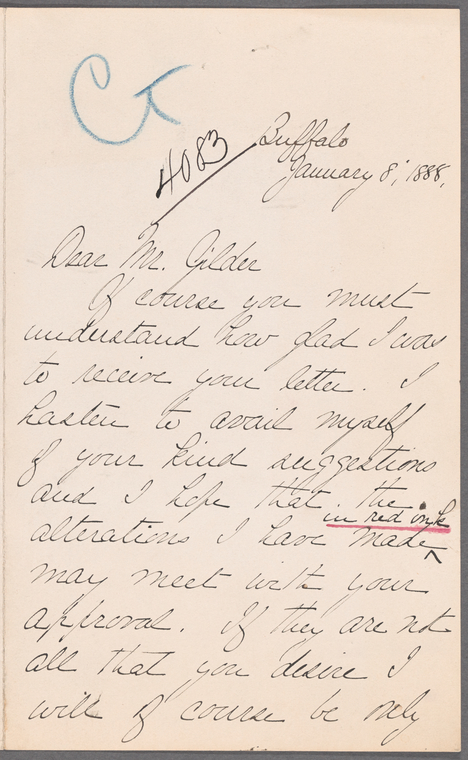 Ct
4083
Buffalo
January 8', 1888,
Dear Mr. Gilder
Of course you must
understand how glad I was
to receive your letter. I
hasten to avail myself
of your kind suggestions
and I hope that the
in red ink
alterations I have made
may meet with your
approval. If they are not
all that you desire I
will of course be only